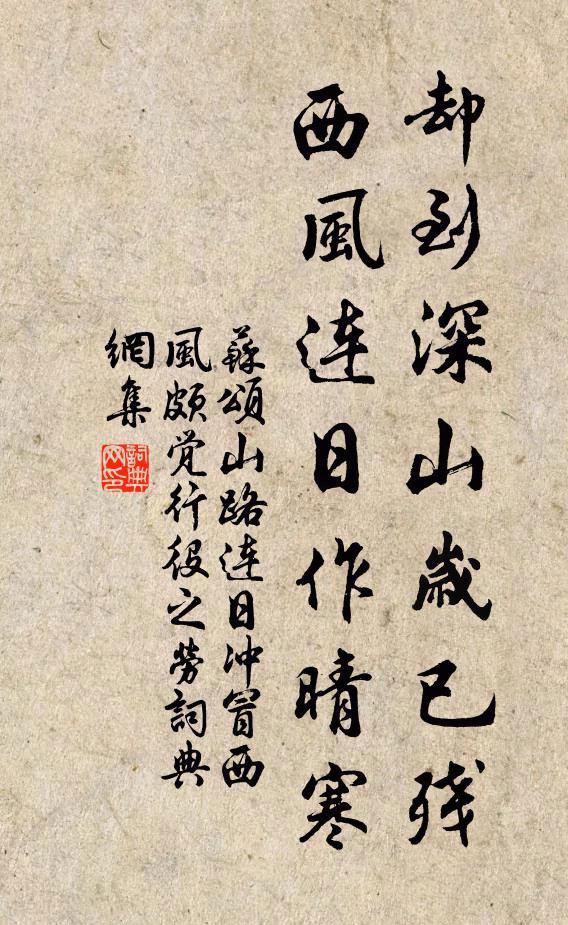 却到深山歲已残
西風連日作晴寒
蘇頌山路連日冲冒西
風頗觉行役之勞詞典
網集
詞典
网印